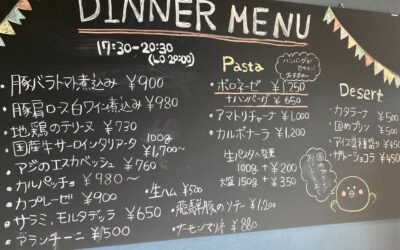 DINNER MENU
17:30-20:30
(LO 20:00)
・豚バラトマト煮込み ¥900
・豚肩ロース白ワイン煮込み ¥980
・地鶏のテリーヌ ¥730
・国産牛サーロインタリアータ 100g ¥1,700~
・アジのエスカベッシュ ¥760
・カルパッチョ ¥980~
・カプレーゼ ¥900
・サラミ、モルタデッラ ¥650
・アランチーニ ¥500
・生ハム ¥500
・飛騨豚のソテー ¥1,200
・サーモンマリネ ¥880
Pasta
ハンバーグが
おすすめ
・ボロネーゼ ¥1250
ハンバーグ ¥650
・アマトリチャーナ ¥1,200
・カルボナーラ ¥1,200
生パスタへ変更
100g + ¥200
大盛 150g + ¥350
Desert
・カタラーナ ¥500
・固めプリン ¥500
・アイス2種盛り ¥450
・ガトーショコラ ¥450